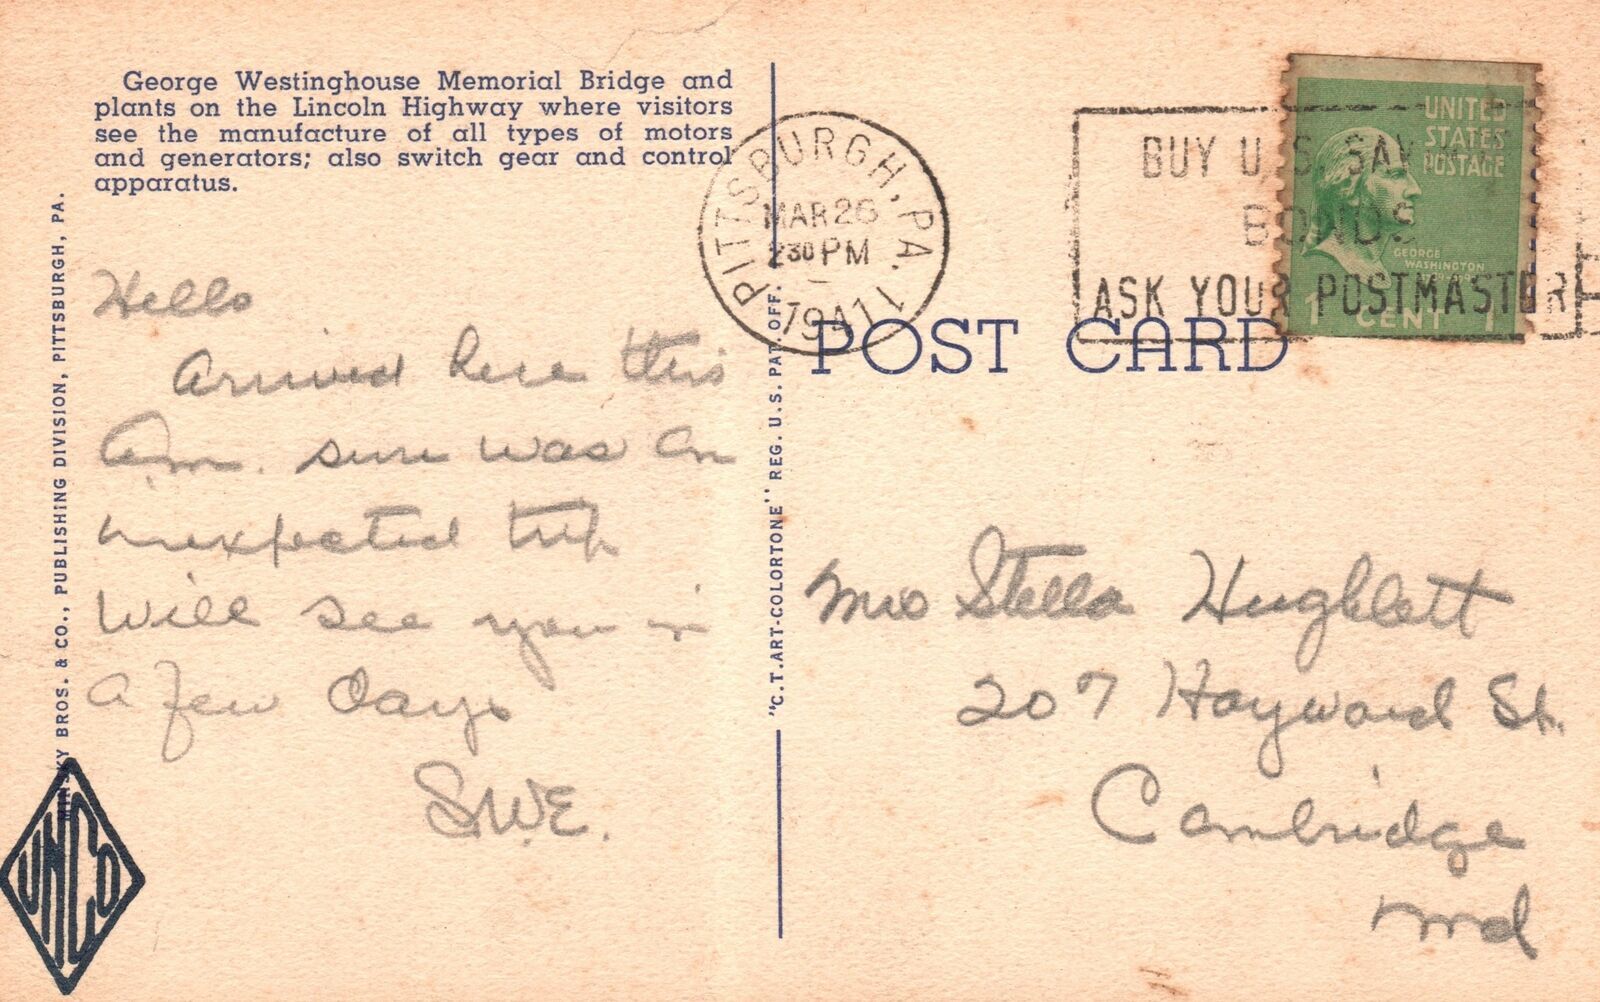 George Westinghouse Memorial Bridge and
plants on the Lincoln Highway where visitors
see the manufacture of all types of motors
and generators; also switch gear and control
apparatus.
BROS. & CO., PUBLISHING DIVISION, PITTSBURGH, PA.
Hello
Arrived here this
A.m. sure was an
unexpected trip
Will see you in
a few days
S.W.E.
UNCO
"C.T. ART-COLORTONE" REG. U.S. PAT. OFF.
PITTSBURGH, PA.
MAR 26
2 30 PM
1941
BUY U.S. SAV
BONDS
ASK YOUR POSTMASTER
UNITED
STATES
POSTAGE
GEORGE
WASHINGTON
1 CENT 1
POST CARD
Mrs Stella Hughlett
207 Hayward St.
Cambridge
Md